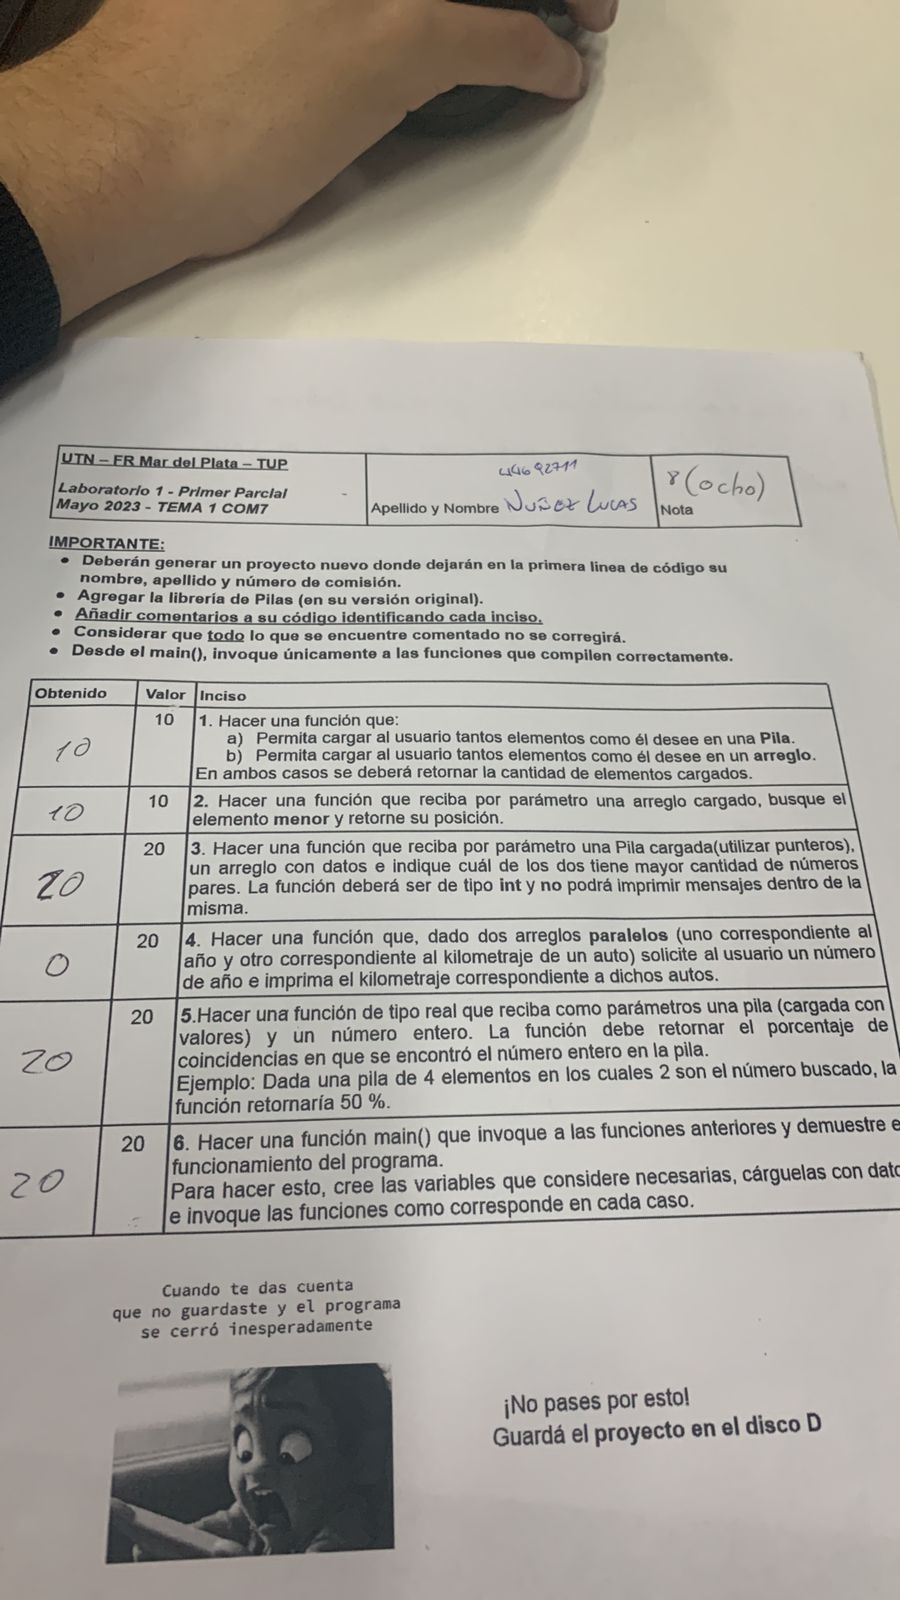 UTN – FR Mar del Plata – TUP
Laboratorio 1 - Primer Parcial
Mayo 2023 - TEMA 1 COM7
44692711
Apellido y Nombre NUÑEZ LUCAS
8 (ocho)
Nota
IMPORTANTE:
• Deberán generar un proyecto nuevo donde dejarán en la primera linea de código su
nombre, apellido y número de comisión.
• Agregar la librería de Pilas (en su versión original).
• Añadir comentarios a su código identificando cada inciso.
• Considerar que todo lo que se encuentre comentado no se corregirá.
• Desde el main(), invoque únicamente a las funciones que compilen correctamente.
Obtenido Valor Inciso
10 10 1. Hacer una función que:
a) Permita cargar al usuario tantos elementos como él desee en una Pila.
b) Permita cargar al usuario tantos elementos como él desee en un arreglo.
En ambos casos se deberá retornar la cantidad de elementos cargados.
10 10 2. Hacer una función que reciba por parámetro una arreglo cargado, busque el
elemento menor y retorne su posición.
20 20 3. Hacer una función que reciba por parámetro una Pila cargada(utilizar punteros),
un arreglo con datos e indique cuál de los dos tiene mayor cantidad de números
pares. La función deberá ser de tipo int y no podrá imprimir mensajes dentro de la
misma.
0 20 4. Hacer una función que, dado dos arreglos paralelos (uno correspondiente al
año y otro correspondiente al kilometraje de un auto) solicite al usuario un número
de año e imprima el kilometraje correspondiente a dichos autos.
20 20 5.Hacer una función de tipo real que reciba como parámetros una pila (cargada con
valores) y un número entero. La función debe retornar el porcentaje de
coincidencias en que se encontró el número entero en la pila.
Ejemplo: Dada una pila de 4 elementos en los cuales 2 son el número buscado, la
función retornaría 50 %.
20 20 6. Hacer una función main() que invoque a las funciones anteriores y demuestre e
funcionamiento del programa.
Para hacer esto, cree las variables que considere necesarias, cárguelas con dato
e invoque las funciones como corresponde en cada caso.
Cuando te das cuenta
que no guardaste y el programa
se cerró inesperadamente
¡No pases por esto!
Guardá el proyecto en el disco D